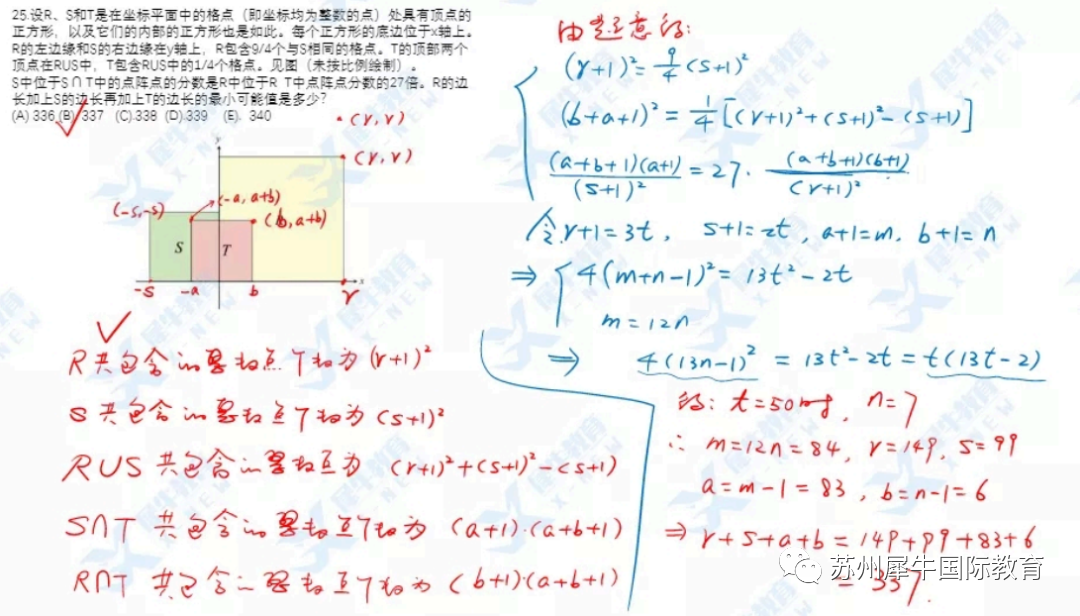 25.设R、S和T是在坐标平面中的格点（即坐标均为整数的点）处具有顶点的
正方形，以及它们的内部的正方形也是如此。每个正方形的底边位于x轴上。
R的左边缘和S的右边缘在y轴上，R包含9/4个与S相同的格点。T的顶部两个
顶点在RUS中，T包含RUS中的1/4个格点。见图（未按比例绘制）。
S中位于S∩T中的点阵点的分数是R中位于R T中点阵点分数的27倍。R的边
长加上S的边长再加上T的边长的最小可能值是多少？
(A) 336 (B) 337 (C).338 (D).339 (E). 340
(r, r)
y
(r, r)
(-a, a+b)
(-s,-s)
(b, a+b)
S
T
-s
-a
b
r
x
R共包含的 点个 为 (r+1)²
S共包含的 点个 为 (s+1)²
RUS 共包含的 为 (r+1)²+(s+1)²-(s+1)
S∩T 共包含的 个 为 (a+1)·(a+b+1)
R∩T 共包含的 个 为 (b+1)·(a+b+1)
由题意得:
(r+1)²=9/4(s+1)²
(b+a+1)²=1/4[(r+1)²+(s+1)²-(s+1)]
(a+b+1)(a+1)/(s+1)²=27·(a+b+1)(b+1)/(r+1)²
令r+1=3t, s+1=2t, a+1=m, b+1=n
⇒ 4(m+n-1)²=13t²-2t
m=12n
⇒ 4(13n-1)²=13t²-2t=t(13t-2)
得: t=50时, n=7
∴ m=12n=84, r=149, s=99
a=m-1=83, b=n-1=6
⇒ r+s+a+b=149+99+83+6
=337.
苏州犀牛国际教育
犀牛教育
X-NEW